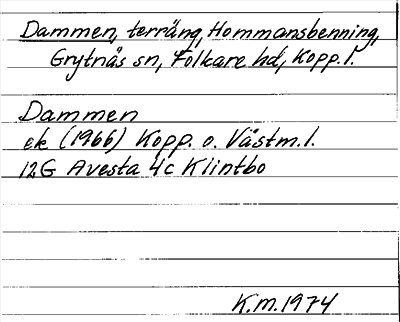 Dammen, terräng, Hommansbenning,
Grytnäs sn, Folkare hd, Kopp. l.
Dammen
ek (1966) Kopp. o. Västm. l.
12G Avesta 4c Klintbo
K.M. 1974